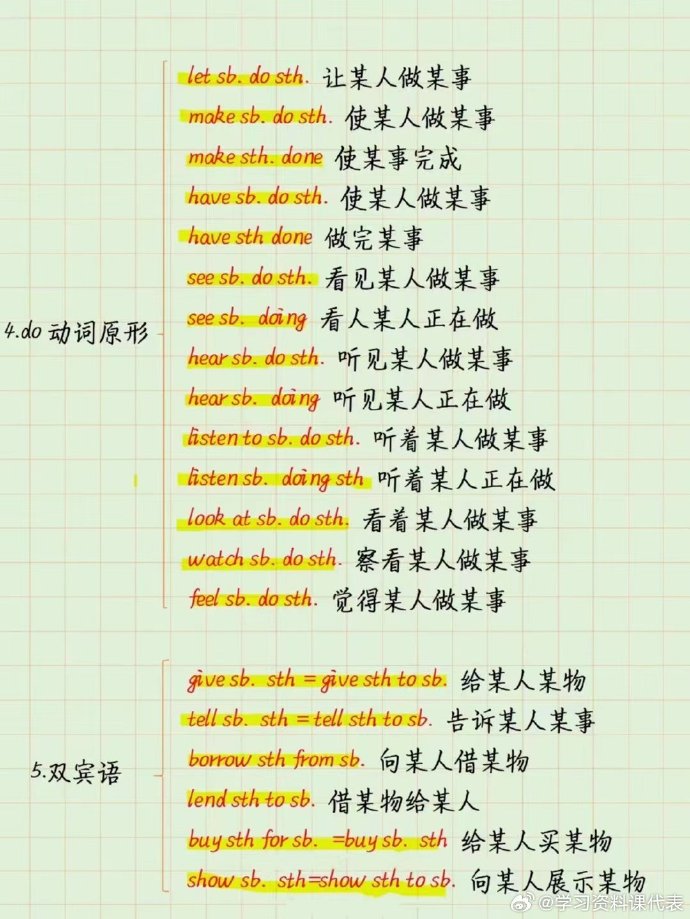 let sb. do sth. 让某人做某事
make sb. do sth. 使某人做某事
make sth. done 使某事完成
have sb. do sth. 使某人做某事
have sth done 做完某事
see sb. do sth. 看见某人做某事
see sb. doing 看人某人正在做
4.do 动词原形
hear sb. do sth. 听见某人做某事
hear sb. doing 听见某人正在做
listen to sb. do sth. 听着某人做某事
listen sb. doing sth 听着某人正在做
look at sb. do sth. 看着某人做某事
watch sb. do sth. 察看某人做某事
feel sb. do sth. 觉得某人做某事
give sb. sth = give sth to sb. 给某人某物
tell sb. sth = tell sth to sb. 告诉某人某事
borrow sth from sb. 向某人借某物
5.双宾语
lend sth to sb. 借某物给某人
buy sth for sb. =buy sb. sth 给某人买某物
show sb. sth=show sth to sb. 向某人展示某物
@学习资料课代表